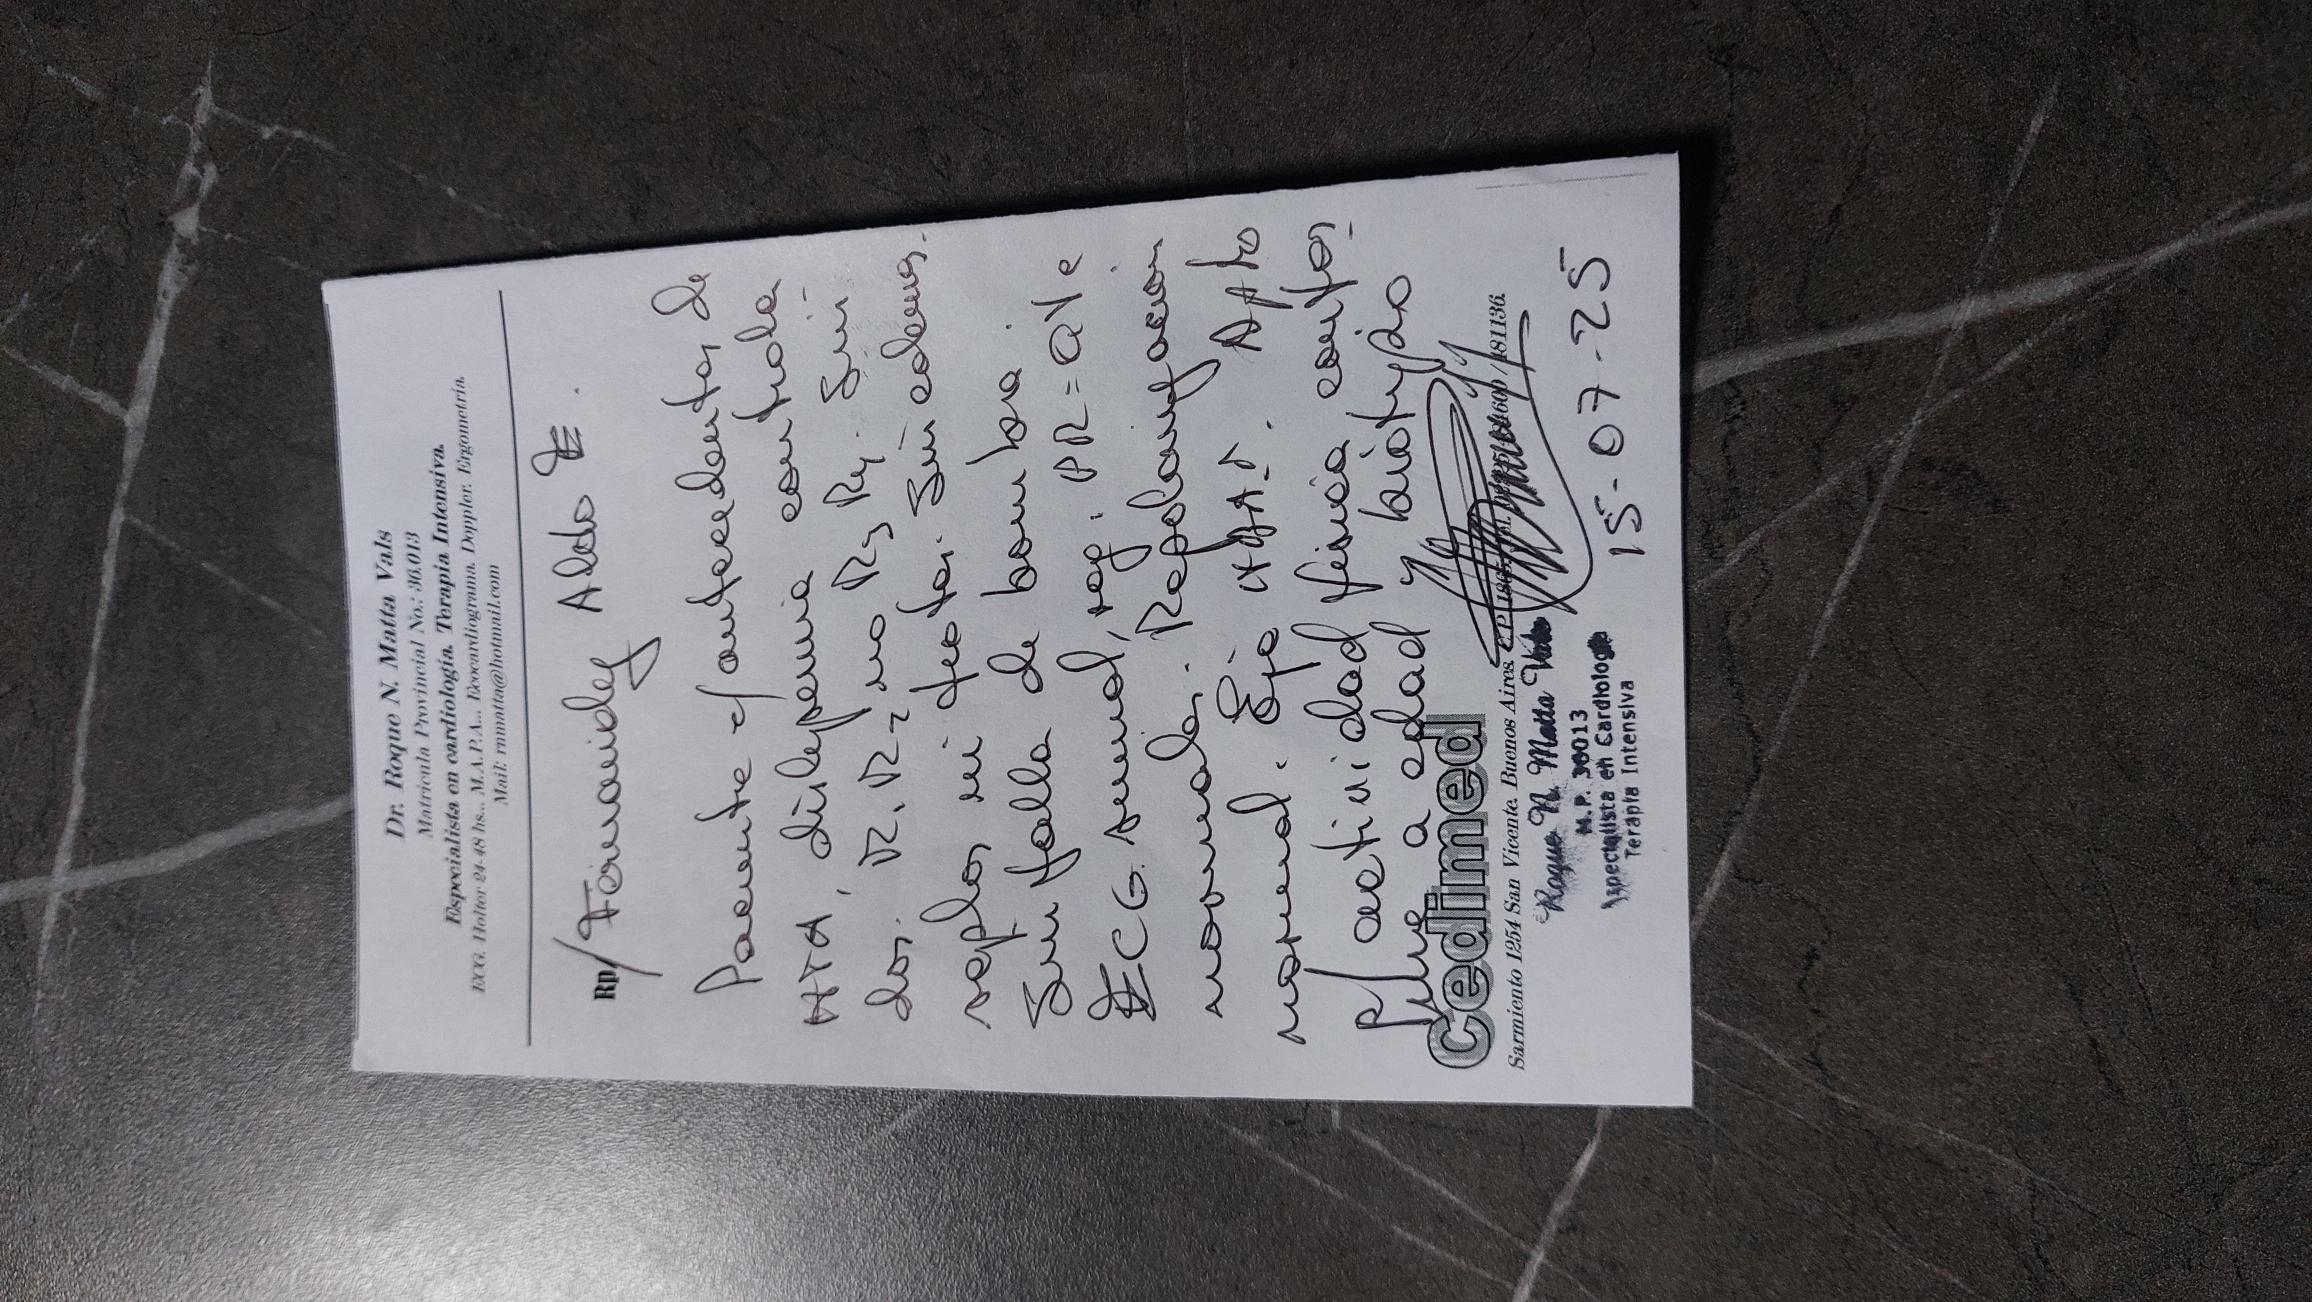 Dr. Roque N. Matta Vals
Matrícula Provincial No.: 36.013
Especialista en cardiología. Terapia Intensiva.
ECG. Holter 24-48 hs... M.A.P.A... Ecocardiograma. Doppler. Ergometría.
Mail: rnmatta@hotmail.com
Rp/ Fernandez Aldo E.
Paciente c/ antecedentes de
HTA, dislipemia controla
dos. R1 R2 no R3 R4. Sin
soplos ni frotes. Sin edemas.
Sin falla de bomba.
ECG. sinusal, reg. PR =
normales. Repolarización
normal. Eje Apto
p/ actividad física confor
me a edad y biotipo
Cedimed
Sarmiento 1254 San Vicente. Buenos Aires. 481136.
Roque N. Matta Vals
M.P. 36013
Especialista en Cardiología
Terapia Intensiva
15-07-25